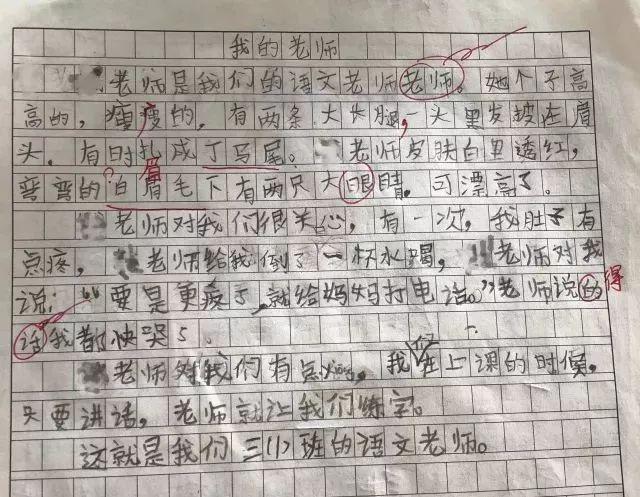 我的老师
老师是我们的语文老师老师。她个子高
高的，瘦瘦的，有两条大长腿，一头黑发披在眉
头，有时扎成了马尾。老师皮肤白里透红，
弯弯的眉毛下有两只大眼睛，可漂亮了。
老师对我们很关心，有一次，我肚子有
点疼，老师给我倒了一杯水喝，老师对我
说：“要是更疼了，就给妈妈打电话。”老师说的得
话我都快哭了。
老师对我们有点xiōng，我们在上课的时候，
只要讲话，老师就让我们练字。
这就是我们三(1)班的语文老师。